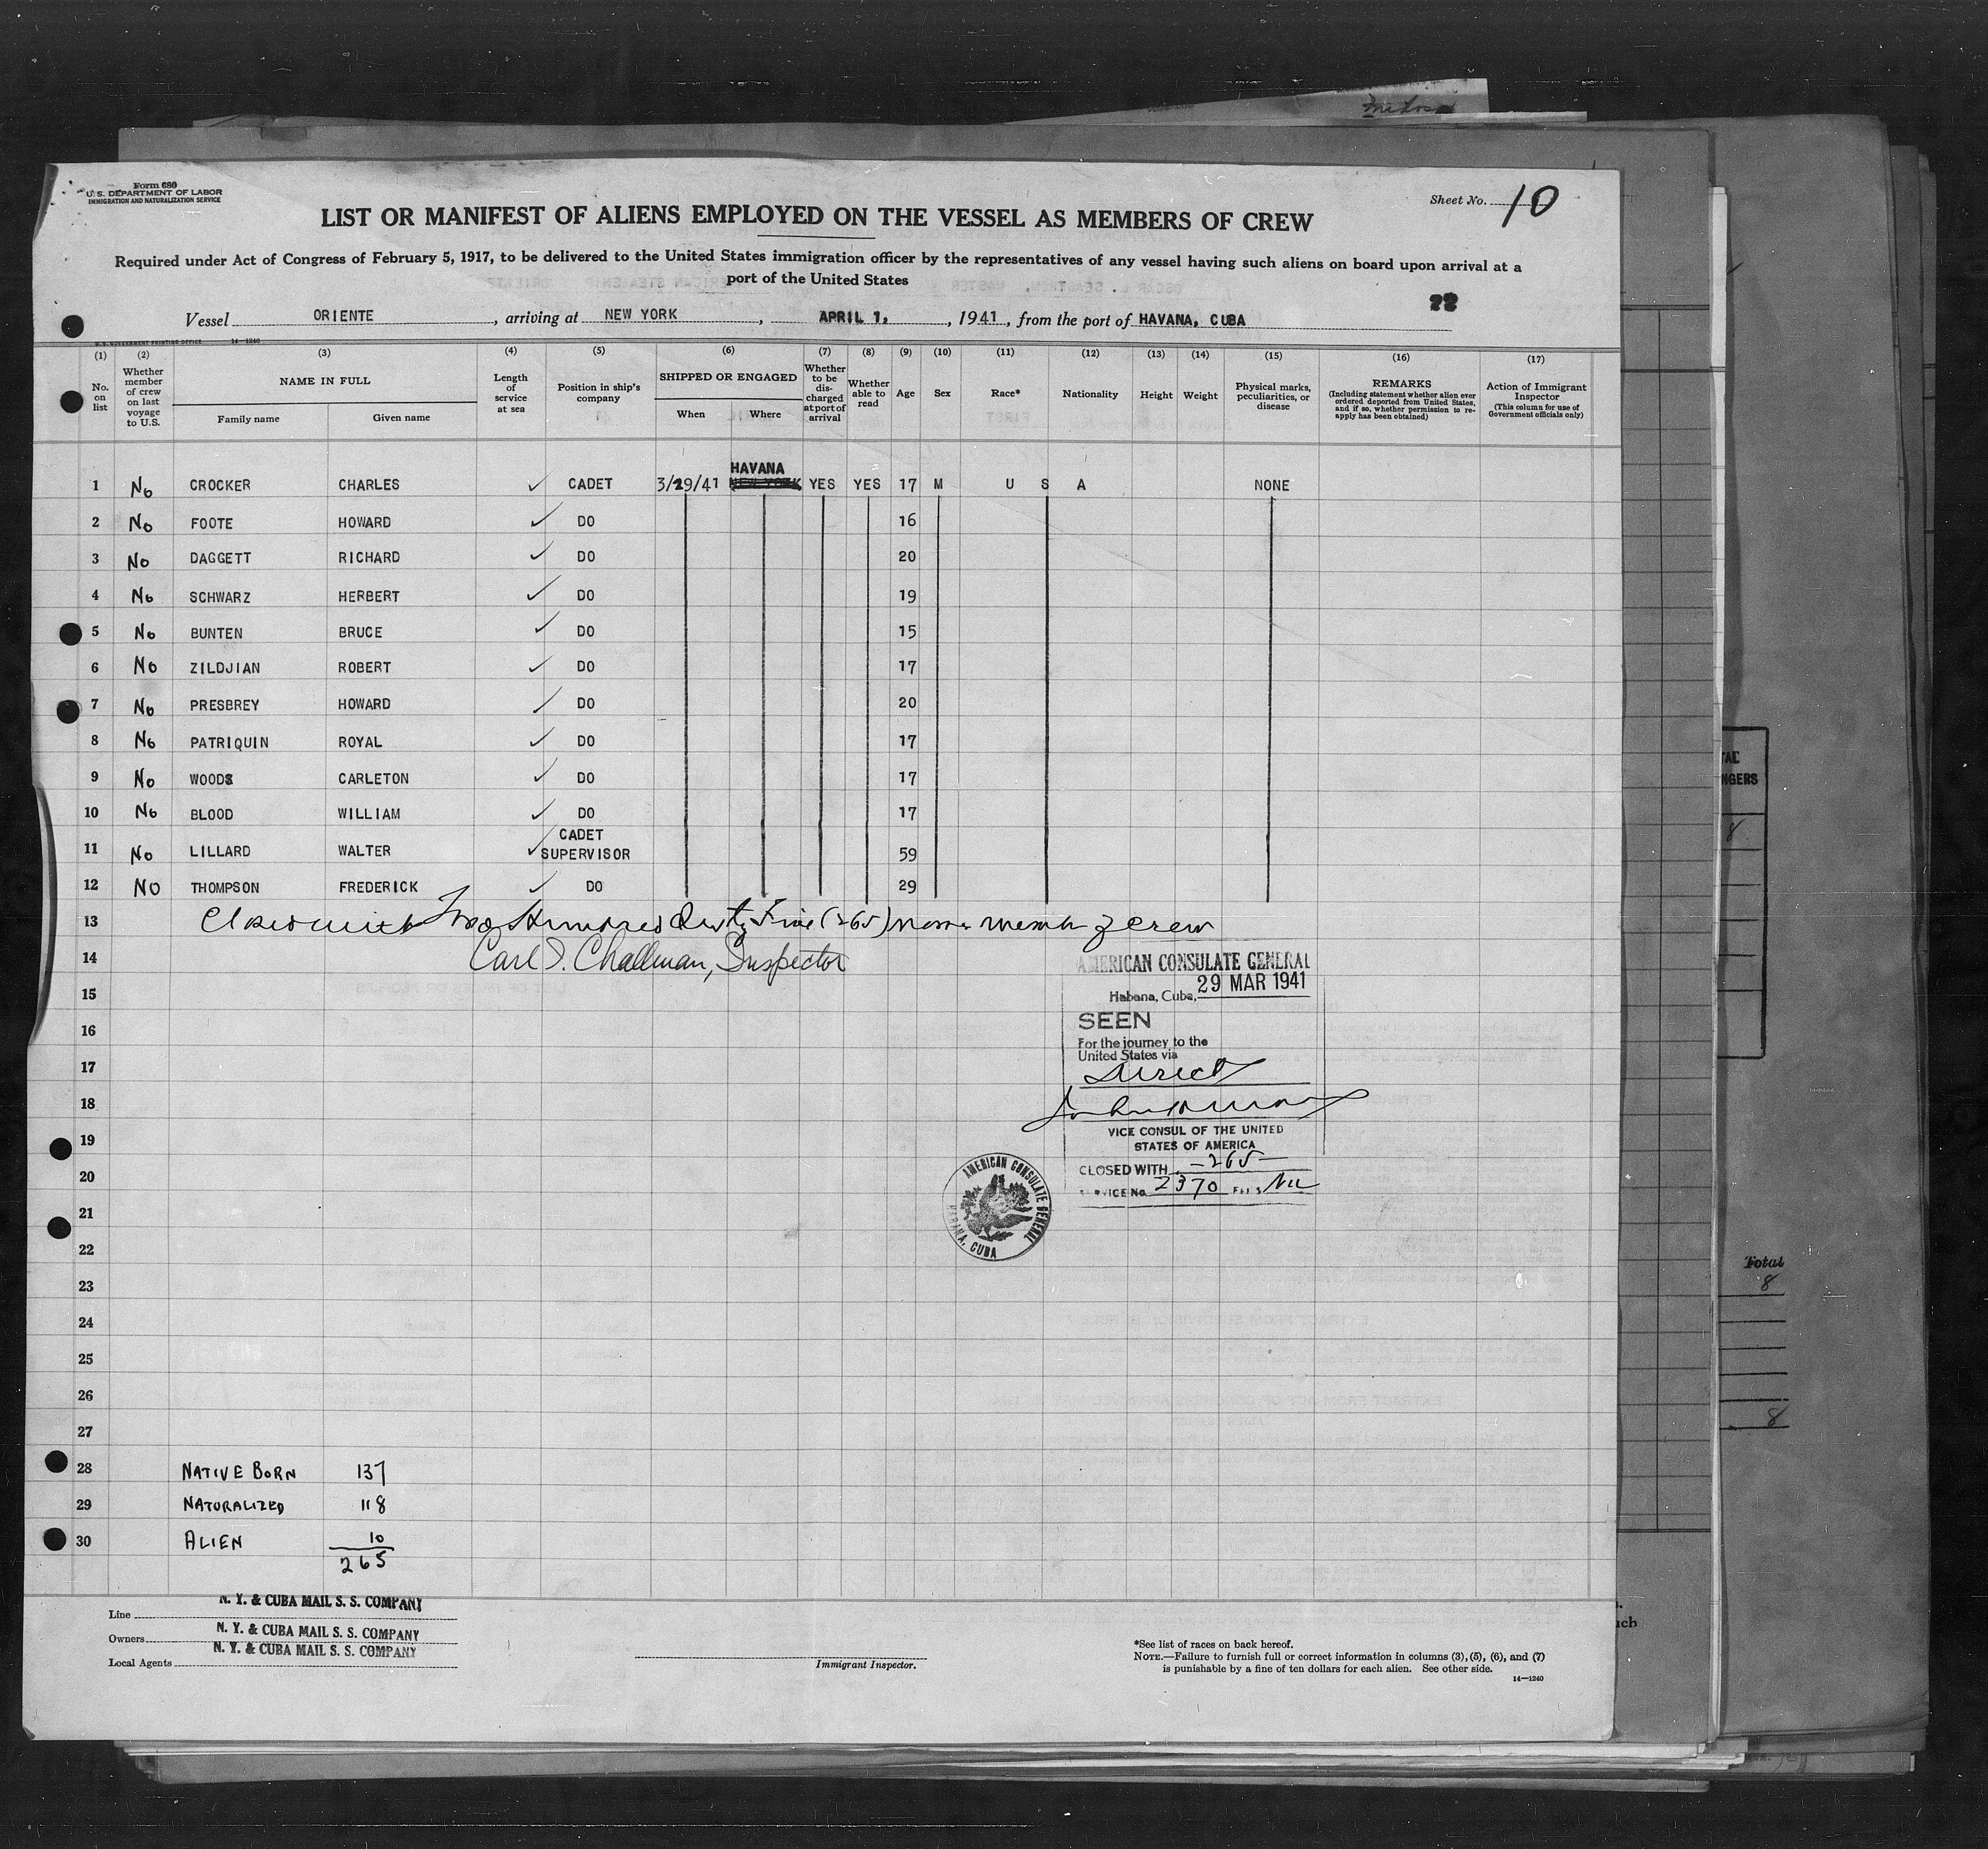 Form 680
U. S. DEPARTMENT OF LABOR
IMMIGRATION AND NATURALIZATION SERVICE
Sheet No. 10
LIST OR MANIFEST OF ALIENS EMPLOYED ON THE VESSEL AS MEMBERS OF CREW
Required under Act of Congress of February 5, 1917, to be delivered to the United States immigration officer by the representatives of any vessel having such aliens on board upon arrival at a
port of the United States
22
Vessel ORIENTE, arriving at NEW YORK, APRIL 1, , 1941, from the port of HAVANA, CUBA
U. S. GOVERNMENT PRINTING OFFICE 14—1240
(1) (2) (3) (4) (5) (6) (7) (8) (9) (10) (11) (12) (13) (14) (15) (16) (17)
No. on list
Whether member of crew on last voyage to U.S.
NAME IN FULL
Family name Given name
Length of service at sea
Position in ship's company
SHIPPED OR ENGAGED
When Where
Whether to be discharged at port of arrival
Whether able to read
Age
Sex
Race*
Nationality
Height
Weight
Physical marks, peculiarities, or disease
REMARKS
(Including statement whether alien ever ordered deported from United States, and if so, whether permission to re-apply has been obtained)
Action of Immigrant Inspector
(This column for use of Government officials only)
HAVANA
1 No CROCKER CHARLES ✓ CADET 3/29/41 NEW YORK YES YES 17 M U S A NONE
2 No FOOTE HOWARD ✓ DO 16
3 No DAGGETT RICHARD ✓ DO 20
4 No SCHWARZ HERBERT ✓ DO 19
5 No BUNTEN BRUCE ✓ DO 15
6 No ZILDJIAN ROBERT ✓ DO 17
7 No PRESBREY HOWARD ✓ DO 20
8 No PATRIQUIN ROYAL ✓ DO 17
9 No WOODS CARLETON ✓ DO 17
10 No BLOOD WILLIAM ✓ DO 17
11 No LILLARD WALTER ✓ CADET SUPERVISOR 59
12 No THOMPSON FREDERICK ✓ DO 29
13 Closed with Two Hundred Sixty Five (265) crew
14 Carl J. Challman, Inspector
15
16
17
18
19
20
21
22
23
24
25
26
27
AMERICAN CONSULATE GENERAL
Habana, Cuba, 29 MAR 1941
SEEN
For the journey to the
United States via
Direct
VICE CONSUL OF THE UNITED
STATES OF AMERICA
CLOSED WITH —265—
SERVICE No. 2370 FEES Nil
AMERICAN CONSULATE GENERAL
HABANA, CUBA
28 NATIVE BORN 137
29 NATURALIZED 118
30 ALIEN 10
265
Line N. Y. & CUBA MAIL S. S. COMPANY
Owners N. Y. & CUBA MAIL S. S. COMPANY
Local Agents N. Y. & CUBA MAIL S. S. COMPANY
Immigrant Inspector.
*See list of races on back hereof.
NOTE.—Failure to furnish full or correct information in columns (3), (5), (6), and (7)
is punishable by a fine of ten dollars for each alien. See other side.
14—1240
Total
8
8